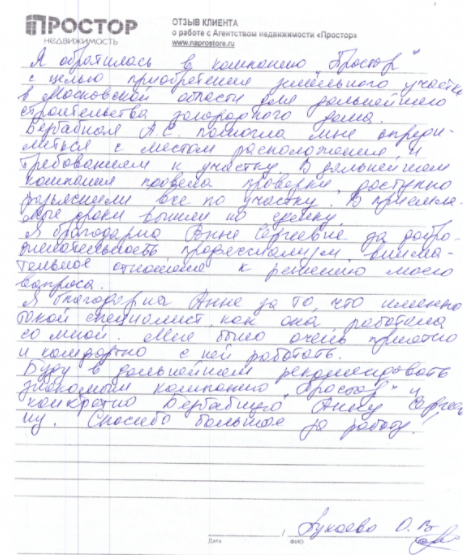 ПРОСТОР
НЕДВИЖИМОСТЬ
ОТЗЫВ КЛИЕНТА
о работе с Агентством недвижимости «Простор»
www.naprostore.ru
Я обратилась в компанию "Простор"
с целью приобретения земельного участка
в Московской области для дальнейшего
строительства загородного дома.
А.С. помогла мне опреде-
литься с местом расположения и
требованием к участку. В дальнейшем
компания провела проверки, доступно
все по участку. В приемле-
мые сроки вышли на сделку.
Я благодарна Анне Сергеевне за добро-
желательность, профессионализм, внима-
тельное отношение к решению моего
вопроса.
Я благодарна Анне за то, что именно
такой специалист как она работала
со мной. Мне было очень приятно
и комфортно с ней работать.
Буду в дальнейшем рекомендовать
знакомым компанию "Простор" и
конкретно Анну Сергеев
ну. Спасибо большое за работу!
О.В.
Дата / ФИО